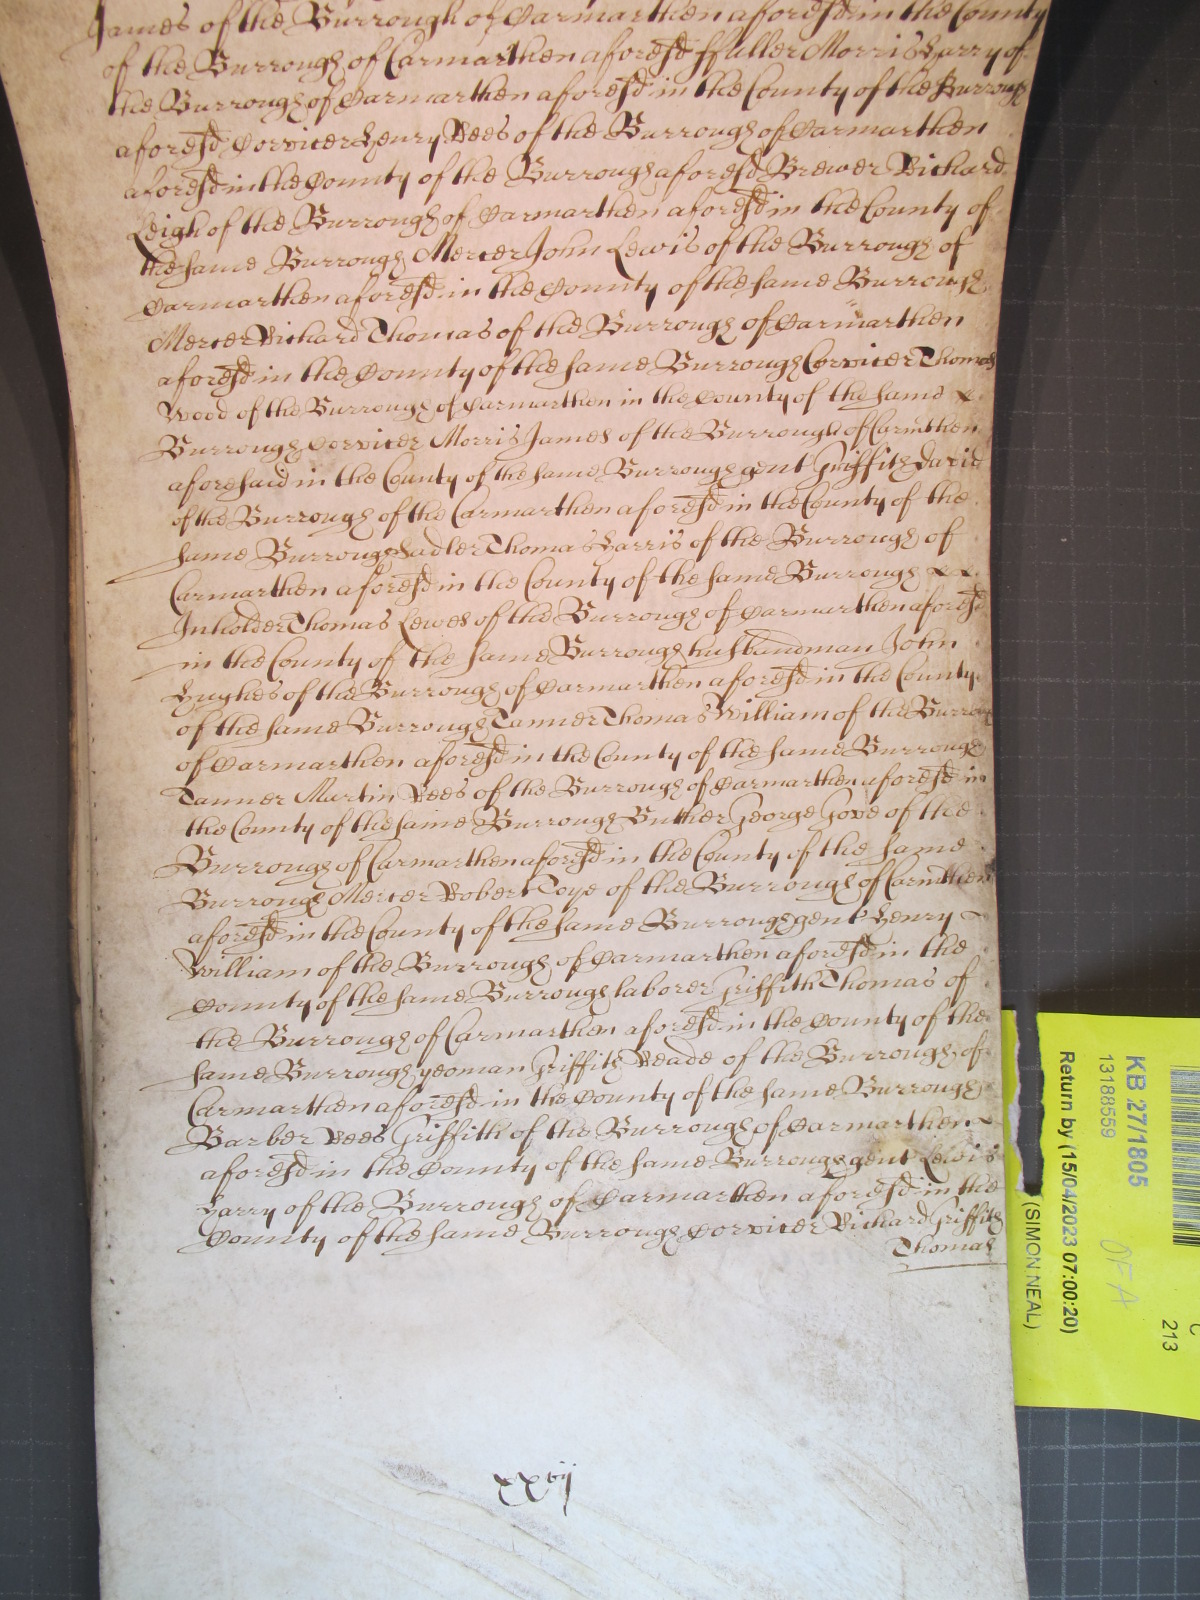 James of the Burrough of Carmarthen aforesd in the County
of the Burrough of Carmarthen aforesd ffuller Morris Harry of
the Burrough of Carmarthen aforesd in the County of the Burrough
aforesd Corvicer Henry Rees of the Burrough of Carmarthen
aforesd in the County of the Burrough aforesd Brewer Richard
Leigh of the Burrough of Carmarthen aforesd in the County of
the same Burrough Mercer John Lewis of the Burrough of
Carmarthen aforesd in the County of the same Burrough
Mercer Richard Thomas of the Burrough of Carmarthen
aforesd in the County of the same Burrough Corvicer Thomas
Wood of the Burrough of Carmarthen in the County of the same x
Burrough Corvicer Morris James of the Burrough of Carmthen
aforesaid in the County of the same Burrough gent Griffith David
of the Burrough of the Carmarthen aforesd in the County of the
same Burrough Sadler Thomas Harris of the Burrough of
Carmarthen aforesd in the County of the same Burrough x x
Inholder Thomas Lewes of the Burrough of Carmarthen aforesd
in the County of the same Burrough husbandman John
Hughes of the Burrough of Carmarthen aforesd in the County
of the same Burrough Tanner Thomas William of the Burrough
of Carmarthen aforesd in the County of the same Burrough
Tanner Martin Rees of the Burrough of Carmarthen aforesd in
the County of the same Burrough Butcher George Gove of the
Burrough of Carmarthen aforesd in the County of the same
Burrough Mercer Robert Toye of the Burrough of Carmthen
aforesd in the County of the same Burrough gent Henry
William of the Burrough of Carmarthen aforesd in the
County of the same Burrough laborer Griffith Thomas of
the Burrough of Carmarthen aforesd in the County of the
same Burrough yeoman Griffith Reade of the Burrough of
Carmarthen aforesd in the County of the same Burrough
Barber Rees Griffith of the Burrough of Carmarthen
aforesd in the County of the same Burrough gent Lewis
Harry of the Burrough of Carmarthen aforesd in the
County of the same Burrough Corvicer Richard Griffith
Thomas
xxvij
KB 27/1805
13188559
Return by (15/04/2023 07:00:20)
(SIMON NEAL)
OFA
213